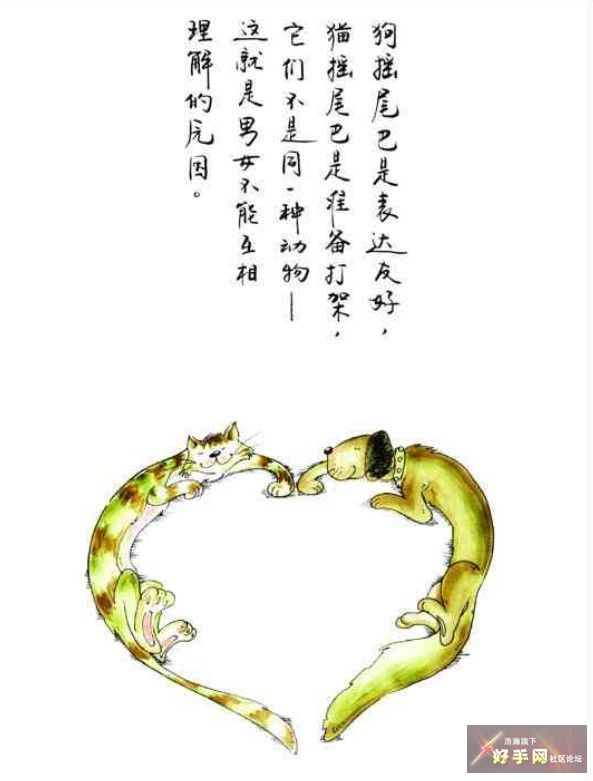 狗摇尾巴是表达友好，
猫摇尾巴是准备打架，
它们不是同一种动物—
这就是男女不能互相
理解的原因。
浩瀚旗下
好手网社区论坛